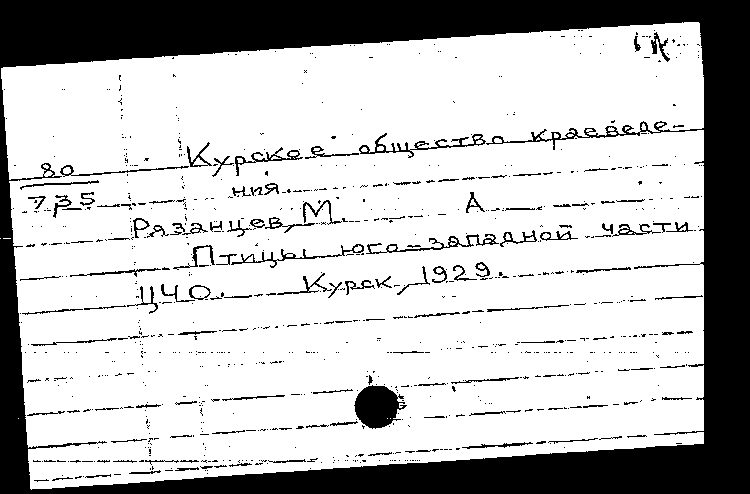 Курское общество краеведе-
80
735
ния.
Рязанцев, М. А
Птицы юго-западной части
ЦЧО. Курск, 1929.